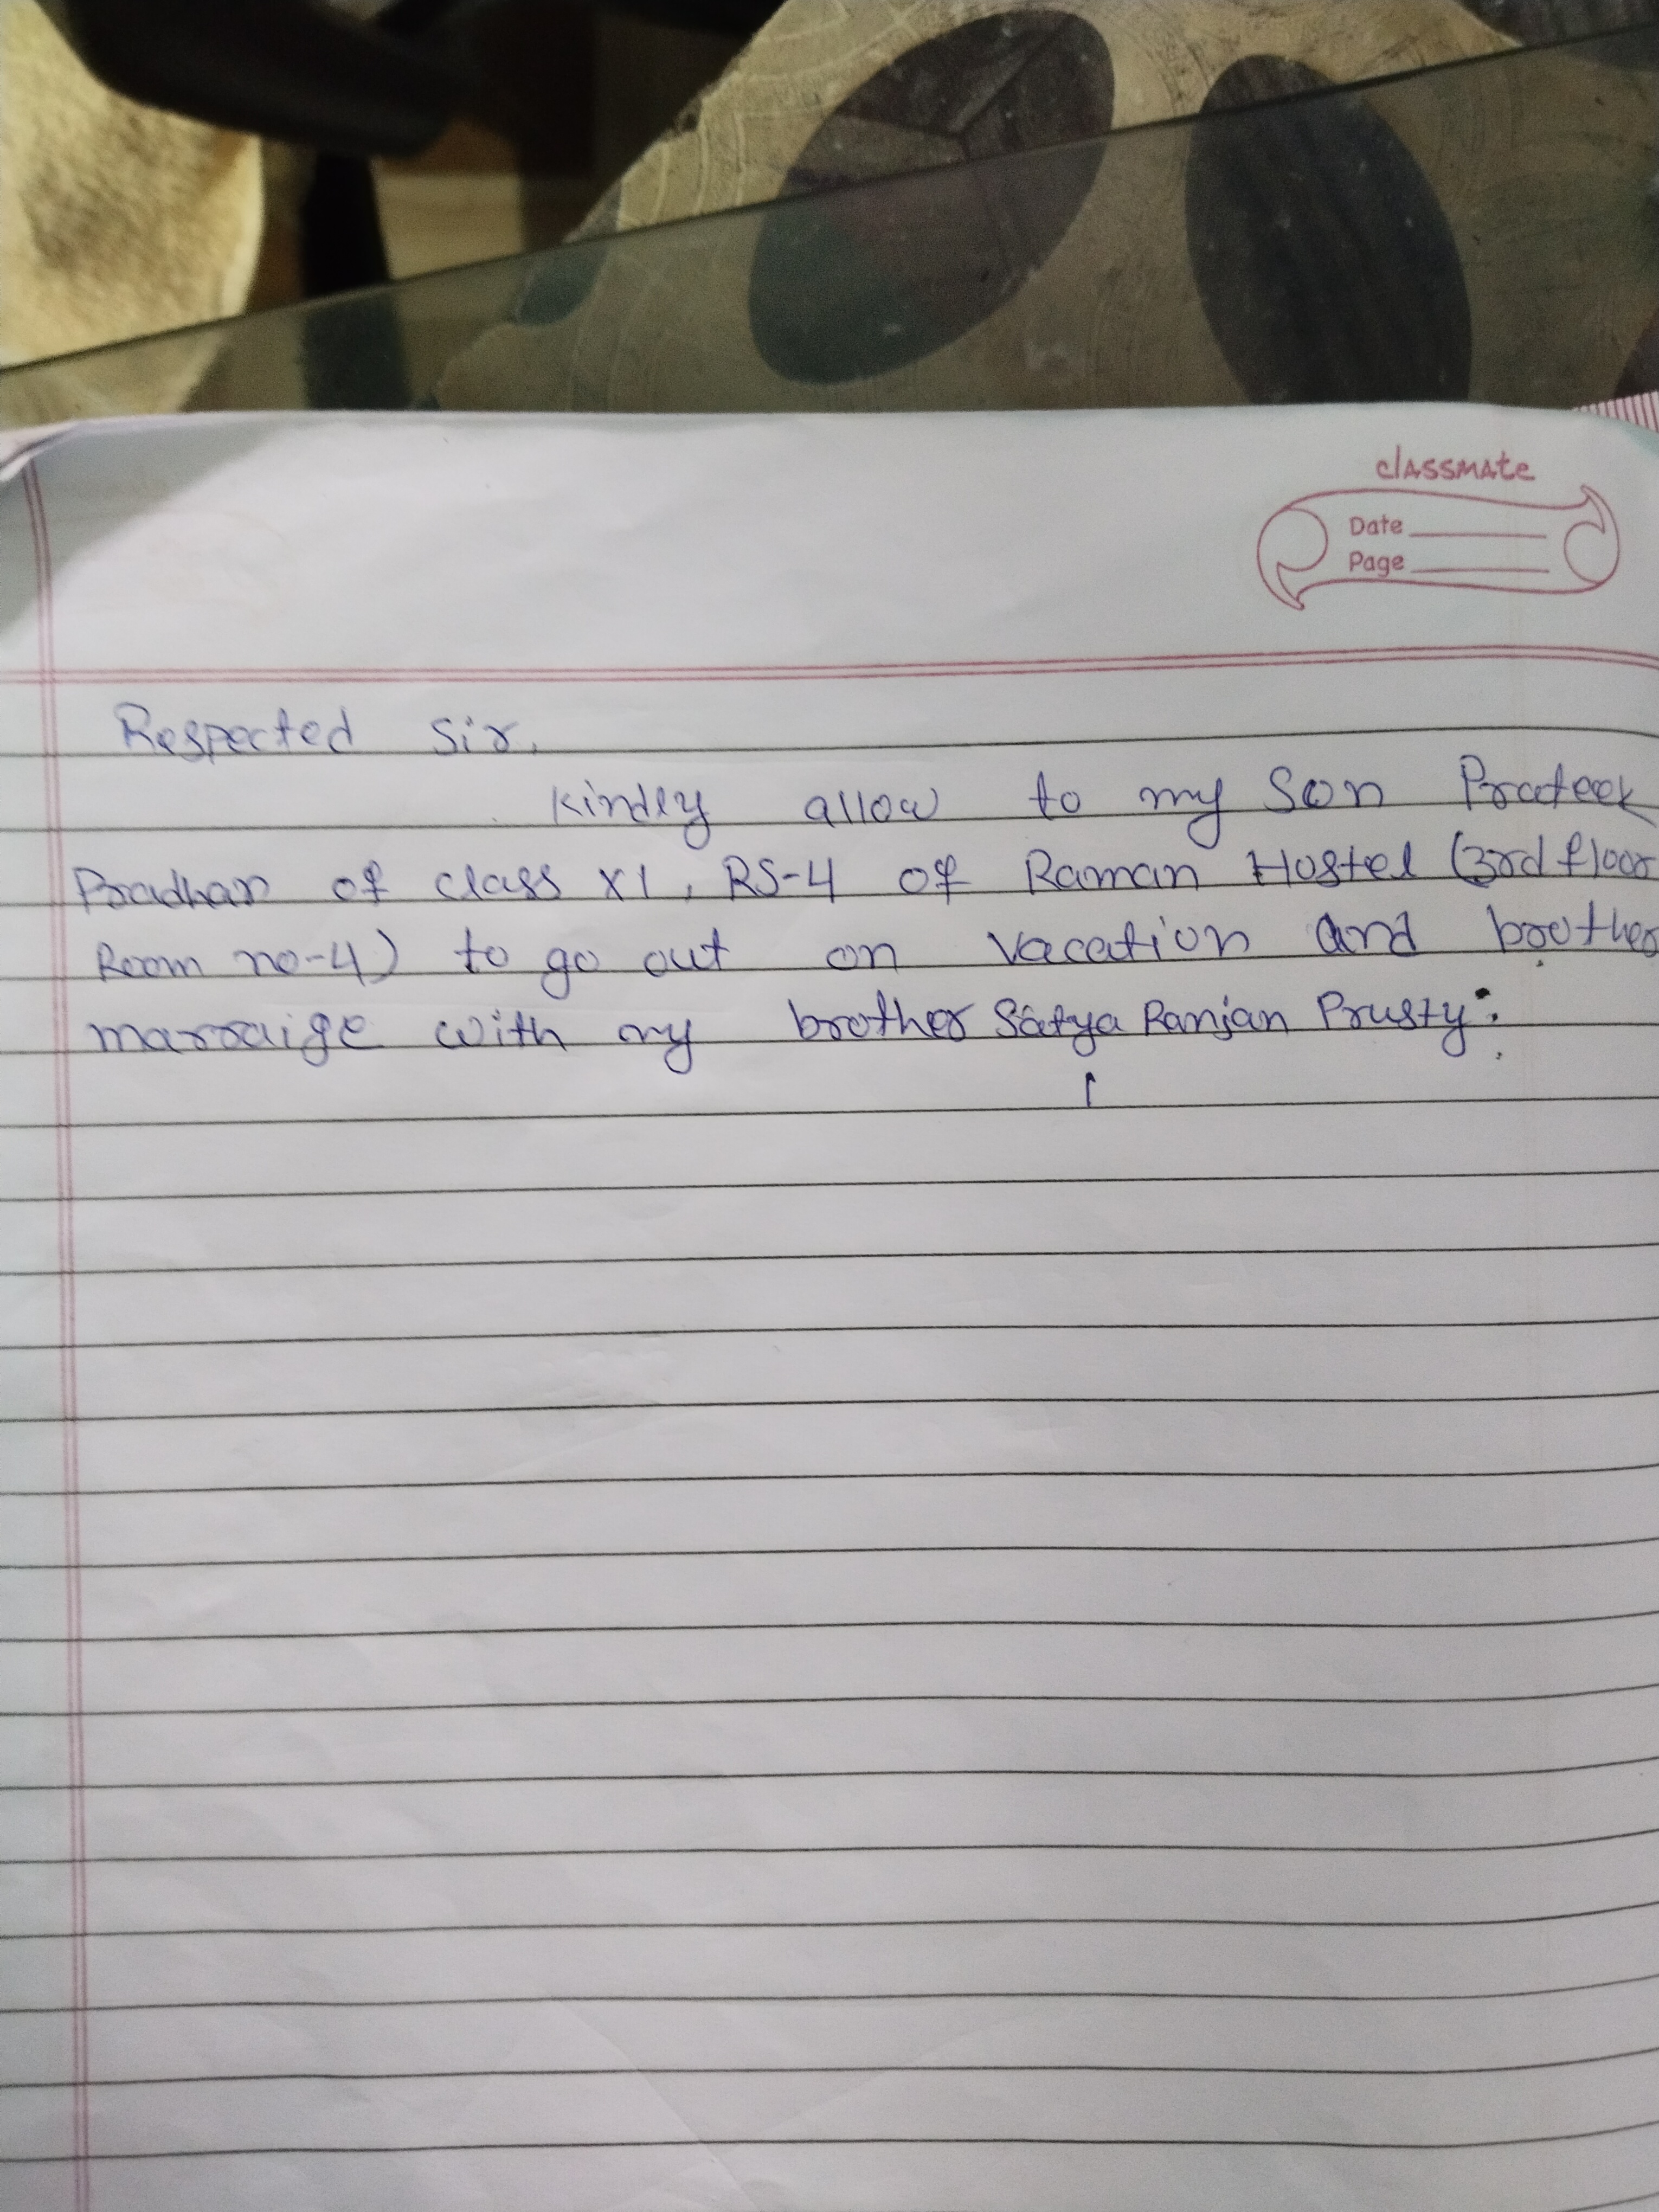 classmate
Date
Page
Respected Sir,
Kindly allow to my Son Prateek
Pradhan of class XI, RS-4 of Raman Hostel (3rd floor
Room no-4) to go out on vacation and brother
marraige with my brother Satya Ranjan Prusty.